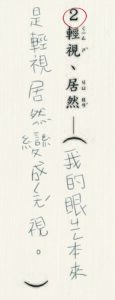 2輕視、居然—(我的眼本來
是輕視居然變成視。)